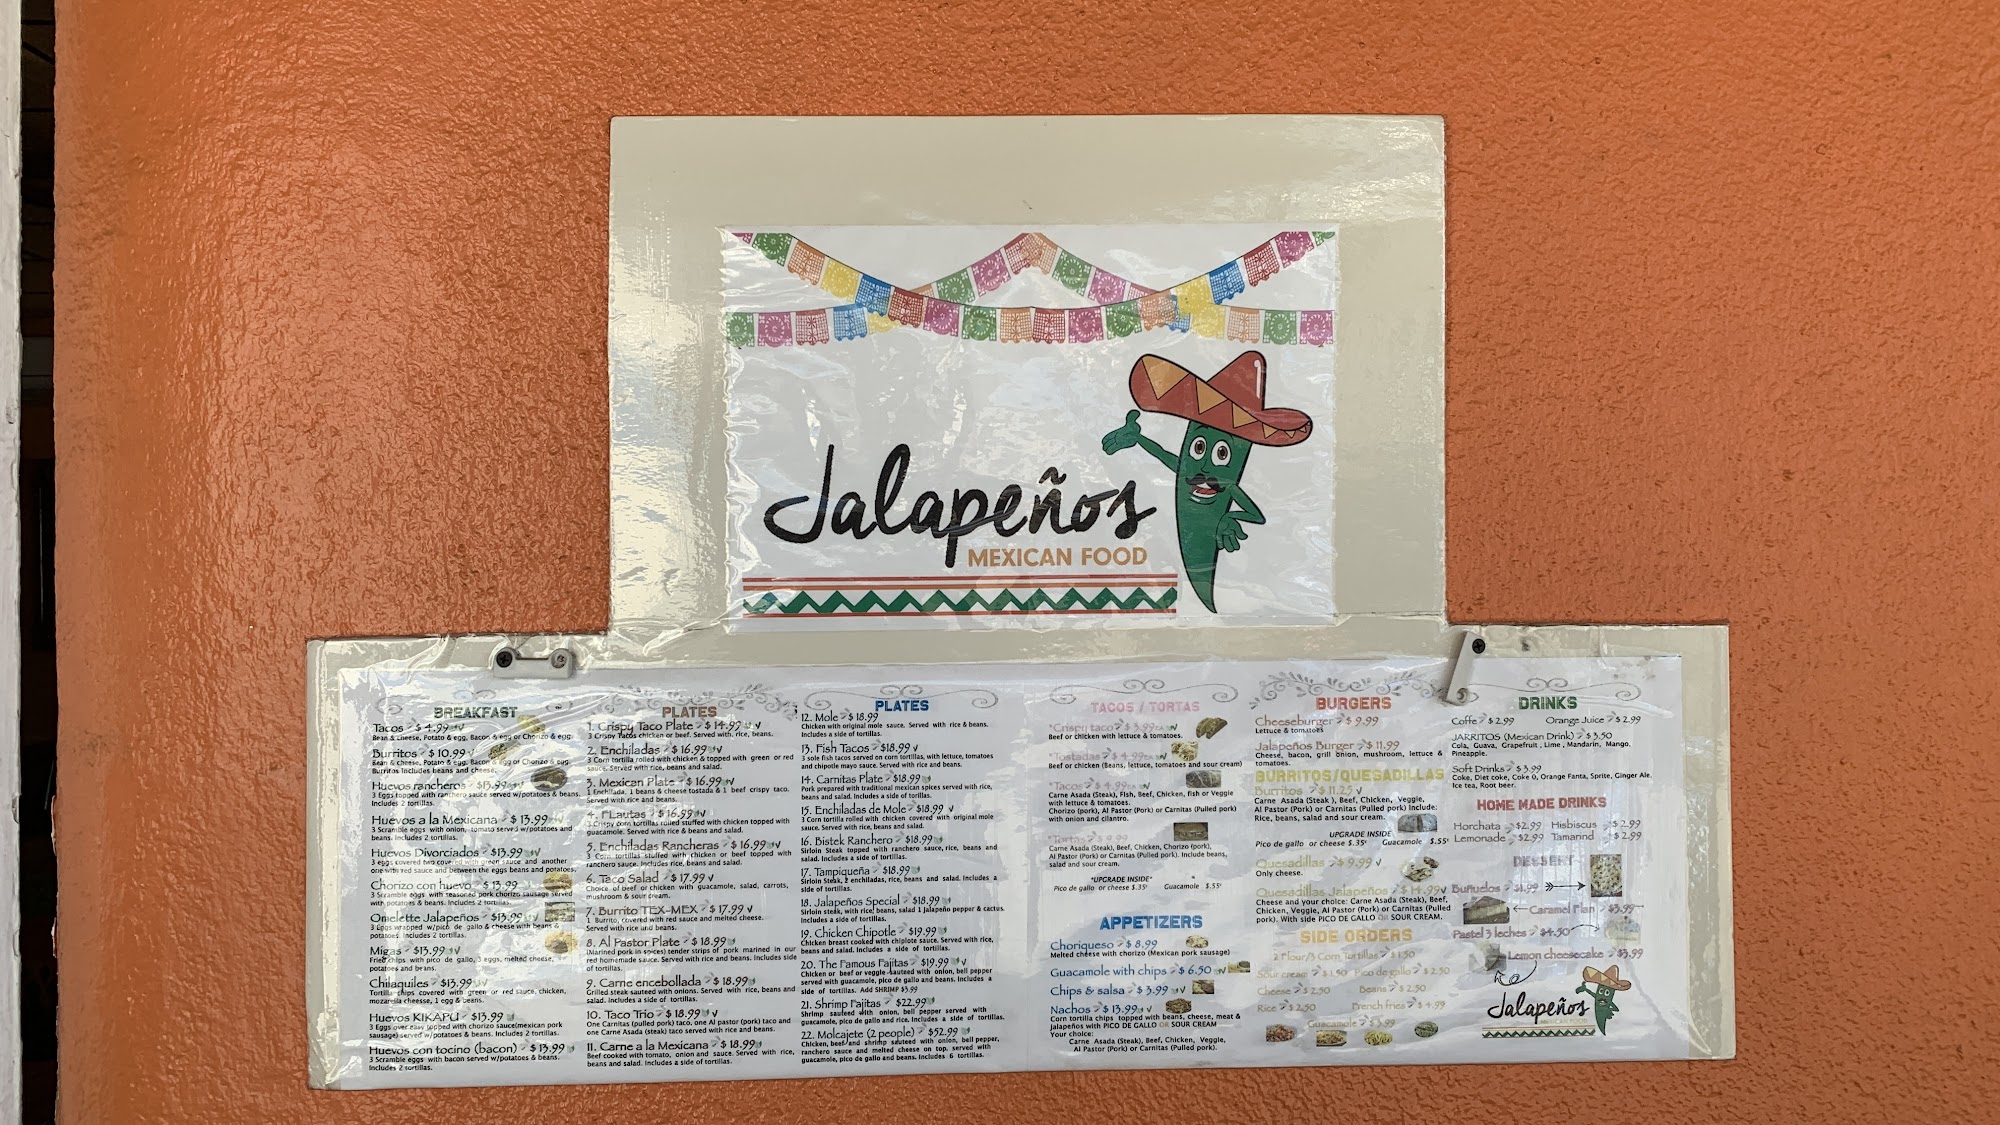 Jalapeños
MEXICAN FOOD
BREAKFAST
Tacos $ 4.99
Bean & cheese, Potato & egg, Bacon & egg or Chorizo & egg.
Burritos $ 10.99
Bean & cheese, Potato & egg, Bacon & egg or Chorizo & egg.
Burritos includes beans and cheese.
Huevos rancheros $13.99
3 Eggs topped with ranchero sauce served w/potatoes & beans.
Includes 2 tortillas.
Huevos a la Mexicana $ 13.99
3 Scramble eggs with onion, tomato served w/potatoes and
beans. Includes 2 tortillas.
Huevos Divorciados $13.99
3 eggs covered two covered with green sauce and another
one with red sauce and between the eggs beans and potatoes.
Chorizo con huevo $ 13.99
3 Scramble eggs with seasoned pork chorizo sausage served
with potatoes & beans. Includes 2 tortillas.
Omelette Jalapeños $13.99
3 Eggs wrapped w/pico de gallo & cheese with beans &
potatoes. Includes 2 tortillas.
Migas $13.99
Fried chips with pico de gallo, 3 eggs, melted cheese,
potatoes and beans.
Chilaquiles $13.99
Tortilla chips covered with green or red sauce, chicken,
mozarella cheesse, 1 egg & beans.
Huevos KIKAPU $13.99
3 Eggs over easy topped with chorizo sauce(mexican pork
sausage) served w/potatoes & beans.
Huevos con tocino (bacon) $ 13.99
3 Scramble eggs with bacon served w/potatoes & beans.
Includes 2 tortillas.
PLATES
1. Crispy Taco Plate $ 14.99
3 Crispy Tacos chicken or beef. Served with, rice, beans.
2. Enchiladas $ 16.99
3 Corn tortilla rolled with chicken & topped with green or red
sauce. Served with rice, beans and salad.
3. Mexican Plate $ 16.99
1 Enchilada, 1 beans & cheese tostada & 1 beef crispy taco.
Served with rice and beans.
4. FLautas $ 16.99
3 Crispy corn tortillas rolled stuffed with chicken topped with
guacamole. Served with rice & beans and salad.
5. Enchiladas Rancheras $ 16.99
3 Corn tortillas stuffed with chicken or beef topped with
ranchero sauce. Includes rice, beans and salad.
6. Taco Salad $ 17.99
Choice of beef or chicken with guacamole, salad, carrots,
mushroom & sour cream.
7. Burrito TEX-MEX $ 17.99
1 Burrito, covered with red sauce and melted cheese.
Served with rice and beans.
8. Al Pastor Plate $ 18.99
(Marined pork in spices) tender strips of pork marined in our
red homemade sauce. Served with rice and beans. Includes side
of tortillas.
9. Carne encebollada $ 18.99
Grilled steak sauteed with onions. Served with rice, beans and
salad. Includes a side of tortillas.
10. Taco Trio $ 18.99
One Carnitas (pulled pork) taco, one Al pastor (pork) taco and
one Carne Asada (steak) taco served with rice and beans.
11. Carne a la Mexicana $ 18.99
Beef cooked with tomato, onion and sauce. Served with rice,
beans and salad. Includes a side of tortillas.
PLATES
12. Mole $ 18.99
Chicken with original mole sauce. Served with rice & beans.
Includes a side of tortillas.
13. Fish Tacos $18.99
3 sole fish tacos served on corn tortillas, with lettuce, tomatoes
and chipotle mayo sauce. Served with rice and beans.
14. Carnitas Plate $18.99
Pork prepared with traditional mexican spices served with rice,
beans and salad. Includes a side of tortillas.
15. Enchiladas de Mole $18.99
3 Corn tortilla rolled with chicken covered with original mole
sauce. Served with rice, beans and salad.
16. Bistek Ranchero $18.99
Sirloin Steak topped with ranchero sauce, rice, beans and
salad. Includes a side of tortillas.
17. Tampiqueña $18.99
Sirloin Steak, 2 enchiladas, rice, beans and salad. Includes a
side of tortillas.
18. Jalapeños Special $18.99
Sirloin steak, with rice, beans, salad 1 Jalapeño pepper & cactus.
Includes a side of tortillas.
19. Chicken Chipotle $19.99
Chicken breast cooked with chiplote sauce. Served with rice,
beans and salad. Includes a side of tortillas.
20. The Famous Fajitas $19.99
Chicken or beef or veggie sauteed with onion, bell pepper
served with guacamole, pico de gallo and beans. Includes a
side of tortillas. Add SHRIMP $3.99
21. Shrimp Fajitas $22.99
Shrimp sauteed with onion, bell pepper served with
guacamole, pico de gallo and rice. Includes a side of tortillas.
22. Molcajete (2 people) $32.99
Chicken, beef and shrimp sauteed with onion, bell pepper,
ranchero sauce and melted cheese on top. served with
guacamole, pico de gallo and beans. Includes 6 tortillas.
TACOS / TORTAS
*Crispy taco $ 3.99
Beef or chicken with lettuce & tomatoes.
*Tostadas $ 4.99
Beef or chicken (Beans, lettuce, tomatoes and sour cream)
*Tacos $ 4.99
Carne Asada (Steak), Fish, Beef, Chicken, fish or Veggie
with lettuce & tomatoes.
Chorizo (pork), Al Pastor (Pork) or Carnitas (Pulled pork)
with onion and cilantro.
*Tortas $ 9.99
Carne Asada (Steak), Beef, Chicken, Chorizo (pork),
Al Pastor (Pork) or Carnitas (Pulled pork). Include beans,
salad and sour cream.
*UPGRADE INSIDE*
Pico de gallo or cheese $.35 Guacamole $.55
APPETIZERS
Choriqueso $ 8.99
Melted cheese with chorizo (Mexican pork sausage)
Guacamole with chips $ 6.50
Chips & salsa $ 3.99
Nachos $ 13.99
Corn tortilla chips topped with beans, cheese, meat &
Jalapeños with PICO DE GALLO OR SOUR CREAM
Your choice:
Carne Asada (Steak), Beef, Chicken, Veggie,
Al Pastor (Pork) or Carnitas (Pulled pork).
BURGERS
Cheeseburger $ 9.99
Lettuce & tomatoes
Jalapeños Burger $ 11.99
Cheese, bacon, grill onion, mushroom, lettuce &
tomatoes.
BURRITOS/QUESADILLAS
Burritos $ 11.25
Carne Asada (Steak ), Beef, Chicken, Veggie,
Al Pastor (Pork) or Carnitas (Pulled pork) Include:
Rice, beans, salad and sour cream.
UPGRADE INSIDE
Pico de gallo or cheese $.35 Guacamole $.55
Quesadillas $ 9.99
Only cheese.
Quesadillas Jalapeños $ 14.99
Cheese and your choice: Carne Asada (Steak), Beef,
Chicken, Veggie, Al Pastor (Pork) or Carnitas (Pulled
pork). With side PICO DE GALLO OR SOUR CREAM.
SIDE ORDERS
2 Flour/3 Corn Tortillas $ 1.50
Sour cream $ 1.50 Pico de gallo $ 2.50
Cheese $ 2.50 Beans $ 2.50
Rice $ 2.50 French fries $ 4.99
Guacamole $ 3.99
DRINKS
Coffe $ 2.99 Orange Juice $ 2.99
JARRITOS (Mexican Drink) $ 3.50
Cola, Guava, Grapefruit, Lime, Mandarin, Mango,
Pineapple.
Soft Drinks $ 3.99
Coke, Diet coke, Coke 0, Orange Fanta, Sprite, Ginger Ale,
Ice tea, Root beer.
HOME MADE DRINKS
Horchata $2.99 Hisbiscus $ 2.99
Lemonade $2.99 Tamarind $ 2.99
DESSERT
Buñuelos $1.99
Caramel Flan $3.99
Pastel 3 leches $4.50
Lemon cheesecake $3.99
Jalapeños